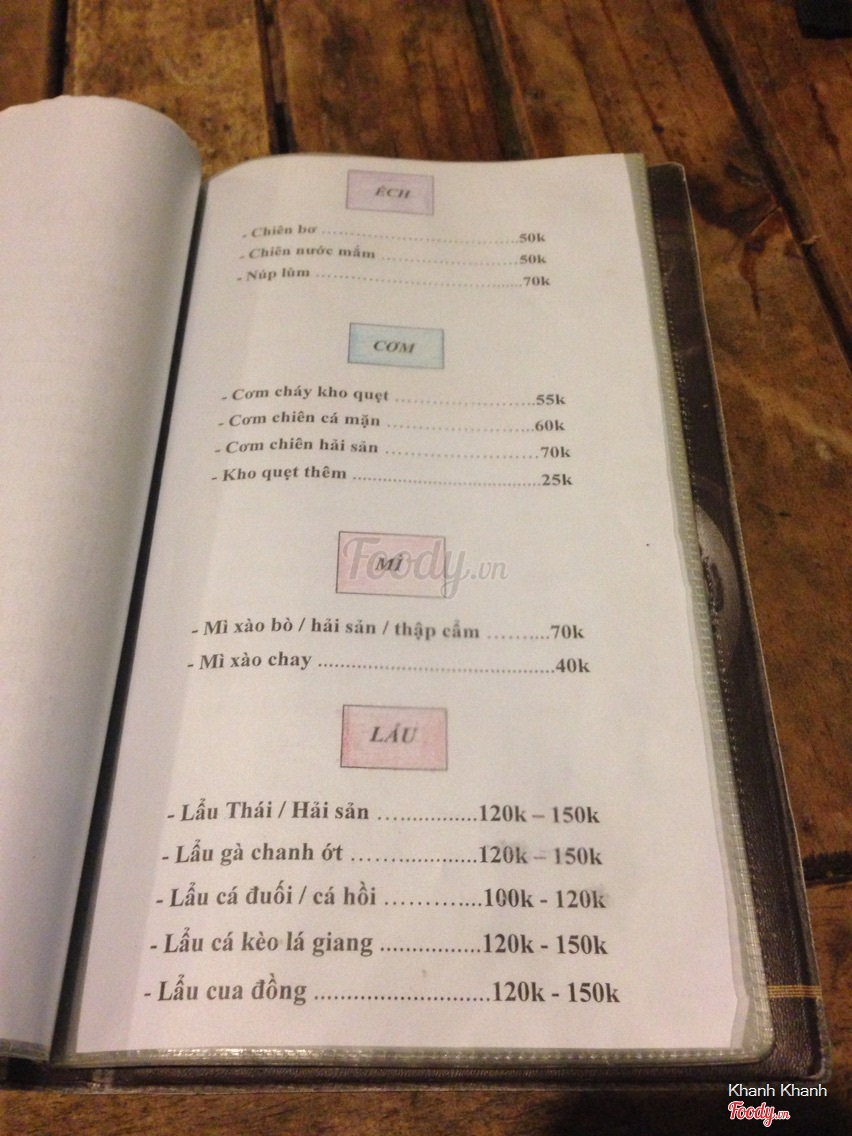 ẾCH
- Chiên bơ ........................................50k
- Chiên nước mắm ............................50k
- Núp lùm ..........................................70k
CƠM
- Cơm cháy kho quẹt .........................55k
- Cơm chiên cá mặn ..........................60k
- Cơm chiên hải sản ...........................70k
- Kho quẹt thêm .................................25k
MÌ
- Mì xào bò / hải sản / thập cẩm ..........70k
- Mì xào chay .....................................40k
LẨU
- Lẩu Thái / Hải sản ................120k – 150k
- Lẩu gà chanh ớt ....................120k – 150k
- Lẩu cá đuối / cá hồi ...............100k - 120k
- Lẩu cá kèo lá giang ................120k - 150k
- Lẩu cua đồng ..........................120k - 150k
Foody.vn
Khanh Khanh
Foody.vn